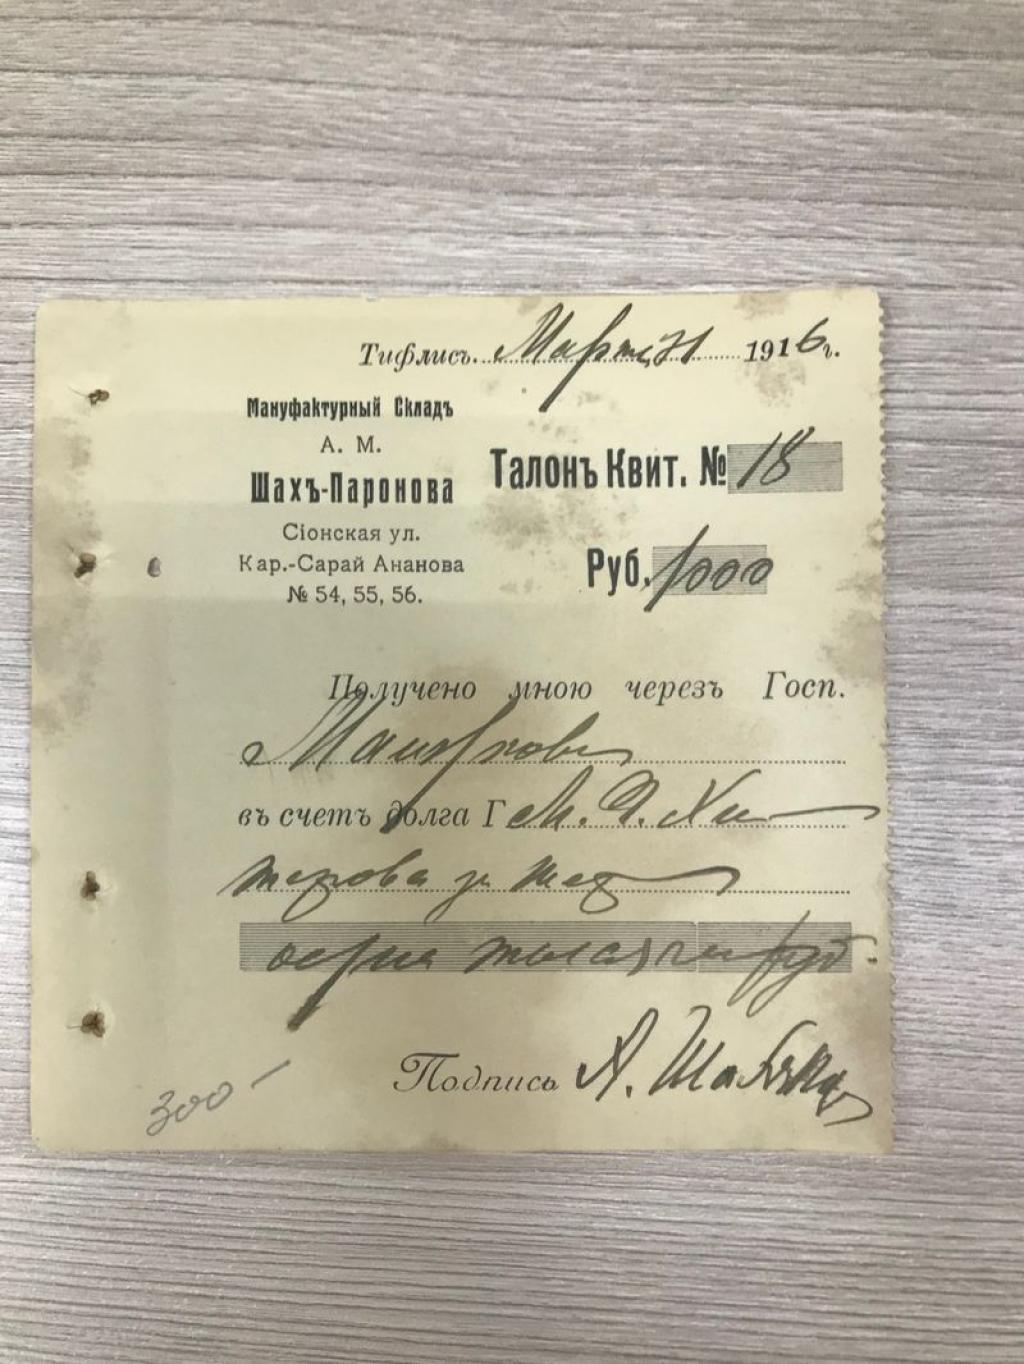 Тифлисъ. Март 31 1916 г.
Мануфактурный Складъ
А. М.
Шахъ-Паронова
Сіонская ул.
Кар.-Сарай Ананова
№ 54, 55, 56.
Талонъ Квит. № 18
Руб. 1000
Получено мною черезъ Госп.
въ счетъ долга Г
тысячи руб.
Подпись А.
300 –